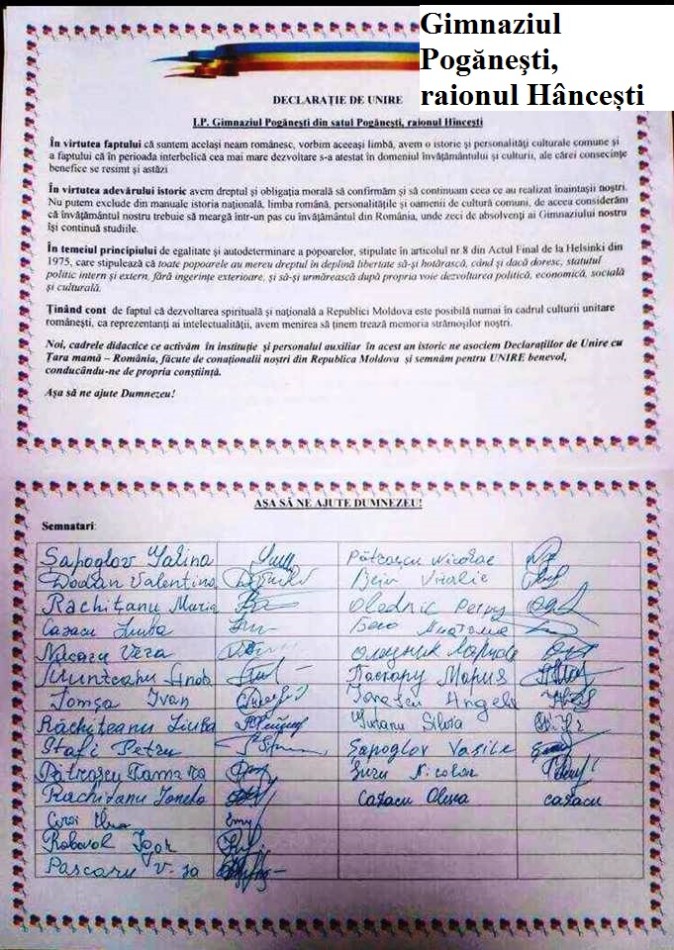 Gimnaziul
Pogăneşti,
raionul Hâncești
DECLARAŢIE DE UNIRE
I.P. Gimnaziul Pogăneşti din satul Pogăneşti, raionul Hînceşti
În virtutea faptului că suntem acelaşi neam românesc, vorbim aceeaşi limbă, avem o istorie şi personalităţi culturale comune şi
a faptului că în perioada interbelică cea mai mare dezvoltare s-a atestat în domeniul învăţământului şi culturii, ale cărei consecinţe
benefice se resimt şi astăzi
În virtutea adevărului istoric avem dreptul şi obligaţia morală să confirmăm şi să continuam ceea ce au realizat înaintaşii noştri.
Nu putem exclude din manuale istoria naţională, limba română, personalităţile şi oamenii de cultură comuni, de aceea considerăm
că învăţământul nostru trebuie să meargă într-un pas cu învăţământul din România, unde zeci de absolvenţi ai Gimnaziului nostru
îşi continuă studiile.
În temeiul principiului de egalitate şi autodeterminare a popoarelor, stipulate în articolul nr 8 din Actul Final de la Helsinki din
1975, care stipulează că toate popoarele au mereu dreptul în deplină libertate să-şi hotărască, când şi dacă doresc, statutul
politic intern şi extern, fără ingerinţe exterioare, şi să-şi urmărească după propria voie dezvoltarea politică, economică, socială
şi culturală.
Ţinând cont de faptul că dezvoltarea spirituală şi naţională a Republici Moldova este posibilă numai în cadrul culturii unitare
româneşti, ca reprezentanţi ai intelectualităţii, avem menirea să ţinem trează memoria strămoşilor noştri.
Noi, cadrele didactice ce activăm în instituţie şi personalul auxiliar în acest an istoric ne asociem Declaraţiilor de Unire cu
Ţara mamă – România, făcute de conaţionalii noştri din Republica Moldova şi semnăm pentru UNIRE benevol,
conducându-ne de propria conştiinţă.
Aşa să ne ajute Dumnezeu!
AŞA SĂ NE AJUTE DUMNEZEU!
Semnatari:
Sapoglov Galina Pătraşcu Nicolae
Dodan Valentina Vitalie
Rachiţanu Maria Olednic
Cazacu Liuba
Nicoara Vera
Munteanu
Tomşa Ivan Angela
Răchiţeanu Liuba Silvia
Stafi Petru Sapoglov Vasile
Pătraşcu Tamara Nicolae
Rachiţanu Ionela Cazacu Olesea cazacu
Igor
Pascaru